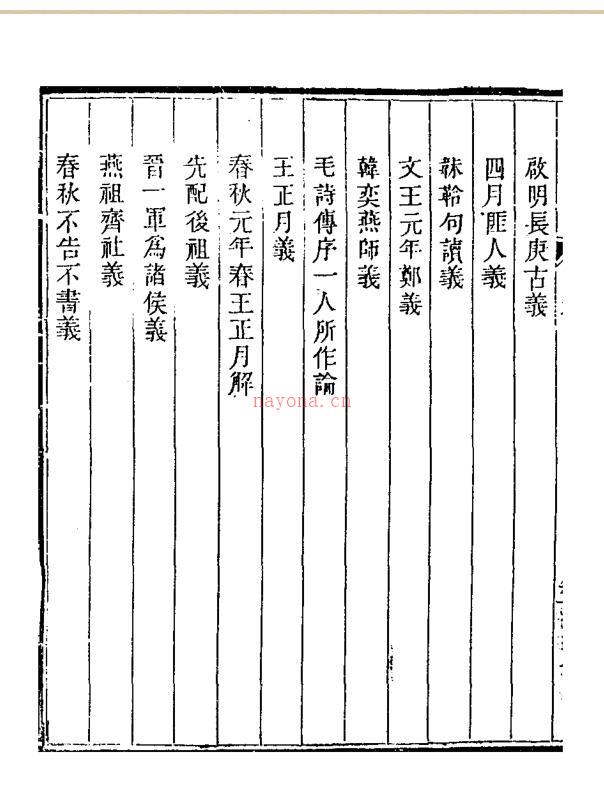 啟明長庚古義
四月匪人義
韎韐句讀義
文王元年鄭義
韓奕燕師義
毛詩傳序一人所作論
王正月義
春秋元年春王正月解
先配後祖義
晉一軍爲諸侯義
燕祖齊社義
春秋不告不書義
nayona.cn